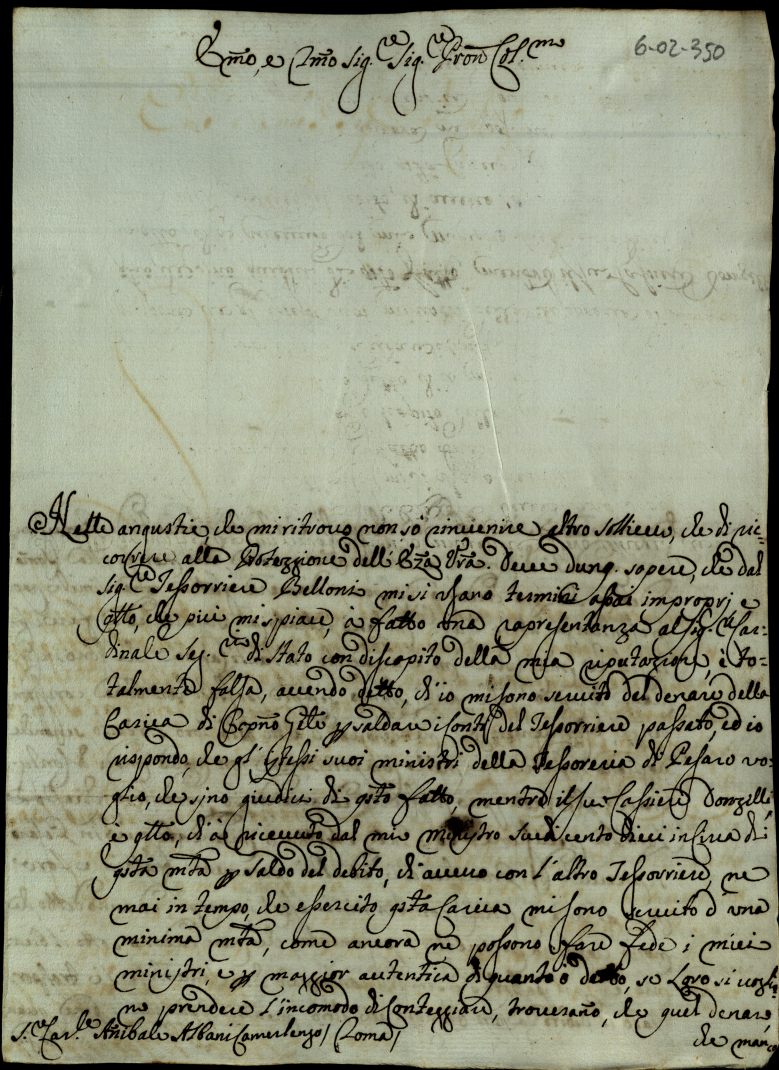 6-02-350
Emo, e Rmo Sig.re Sig.re Pron Col.mo
Nelle angustie, che mi ritrovo non so' rinvenire altro sollievo, che di ric-
correre alla Protezzione dell'Eza Vra. Deve dunq. sapere, che dal
Sig.re Tessorriere Belloni mi si usano termini assai improprj e
qllo, che più mi spiace, à fatto una rapresentanza al Sig.r Car-
dinale Seg.rio di Stato con discapito della mia riputazione, è to-
talmente falsa, avendo detto, ch'io mi sono servito del denaro della
Carica di p saldare i Conti del Tessorriere passato, ed io
rispondo, che gl'istessi suoi ministri della Tessoreria di Pesaro vo-
glio, che sino giudici di qsto fatto, mentre il suo Cassiere Donzelli
è qllo, ch'à ricevuto dal mio ministro scudi cento dieci in circa di
qsta mta p saldo del debito, ch'avevo con l'altro Tessorriere, ne
mai in tempo, che essercito qsta Carica mi sono servito d'una
minima mta, come ancora ne possono fare fede i miei
ministri, e p maggior autentica di quanto ò detto, se Loro si vogl:
no prendere l'incomodo di Conteggiare, troverano, che quel denaro,
che manca
S.r Car.le Anibale Albani Camerlengo / Roma /